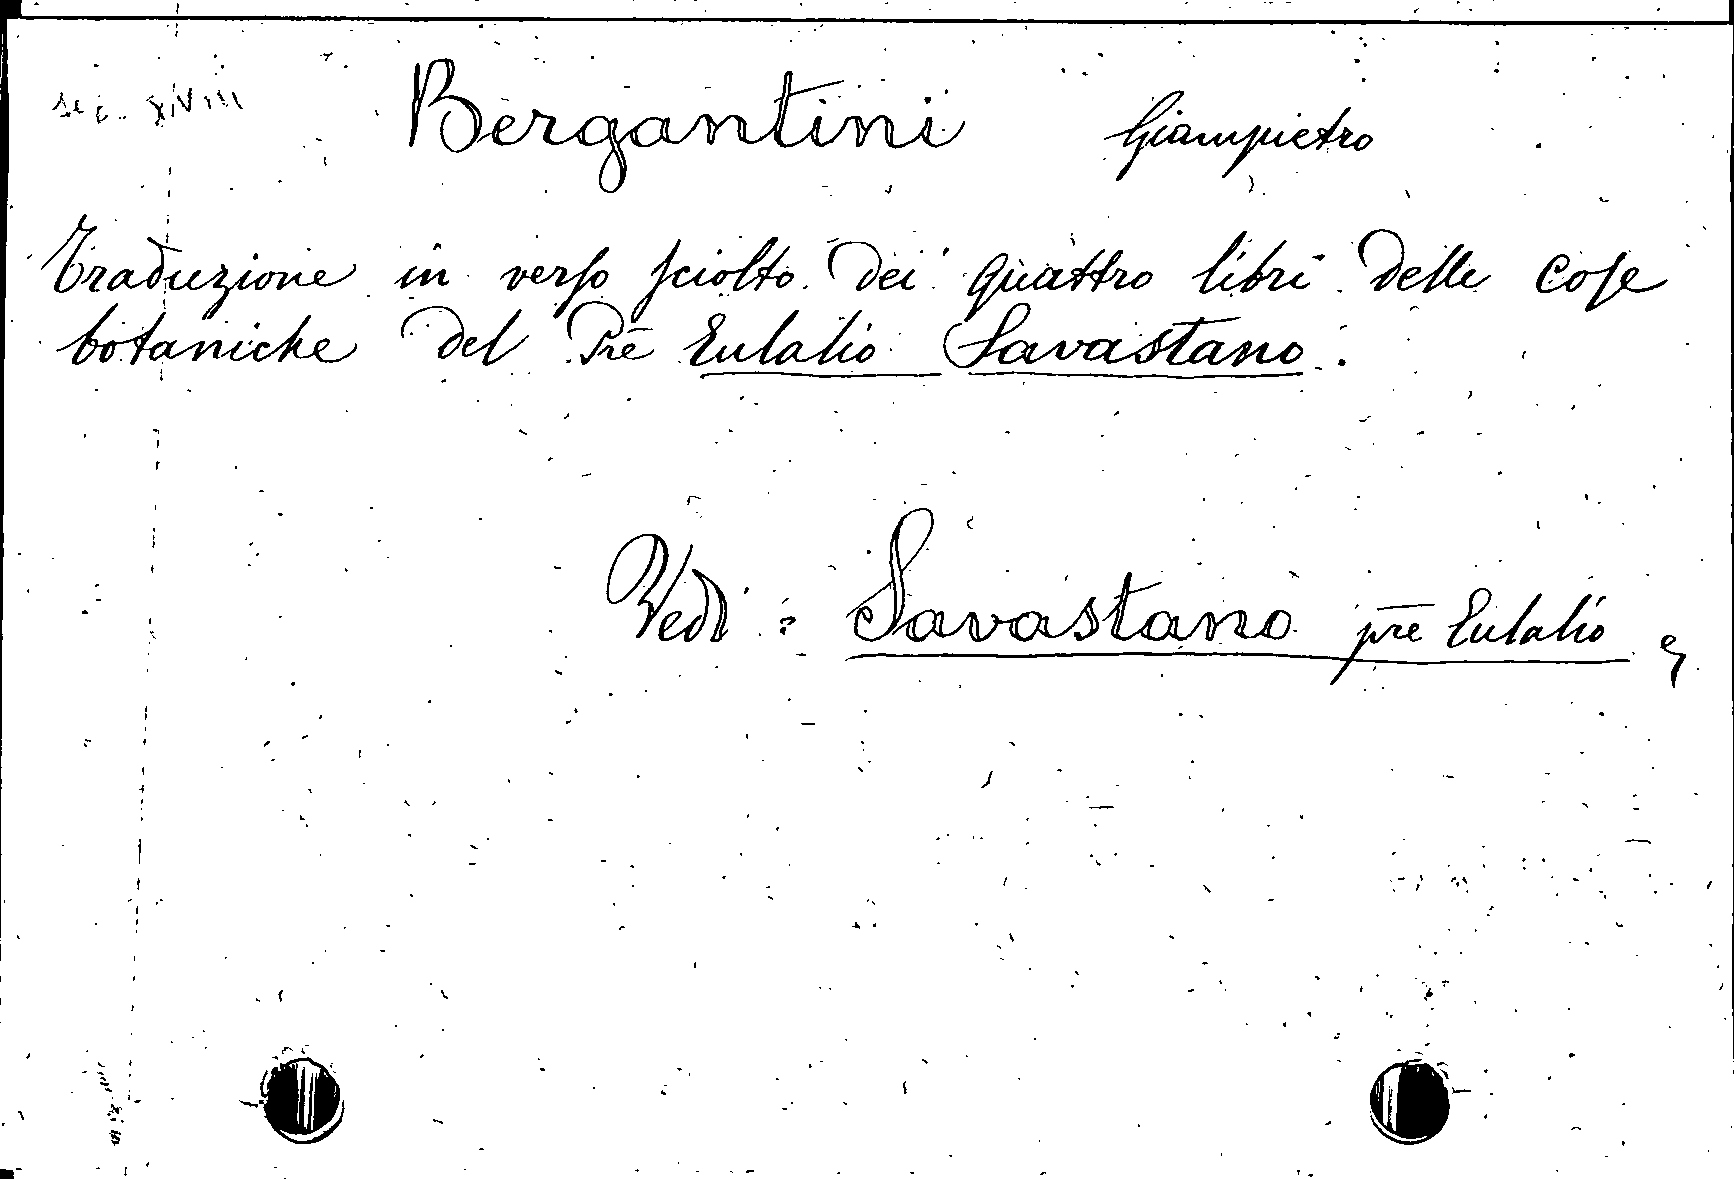 sec. XVIII
Bergantini Giampietro
Traduzione in verso sciolto dei quattro libri delle cose
botaniche del Prē Eulalio Savastano.
Vedi: Savastano prē Eulalio